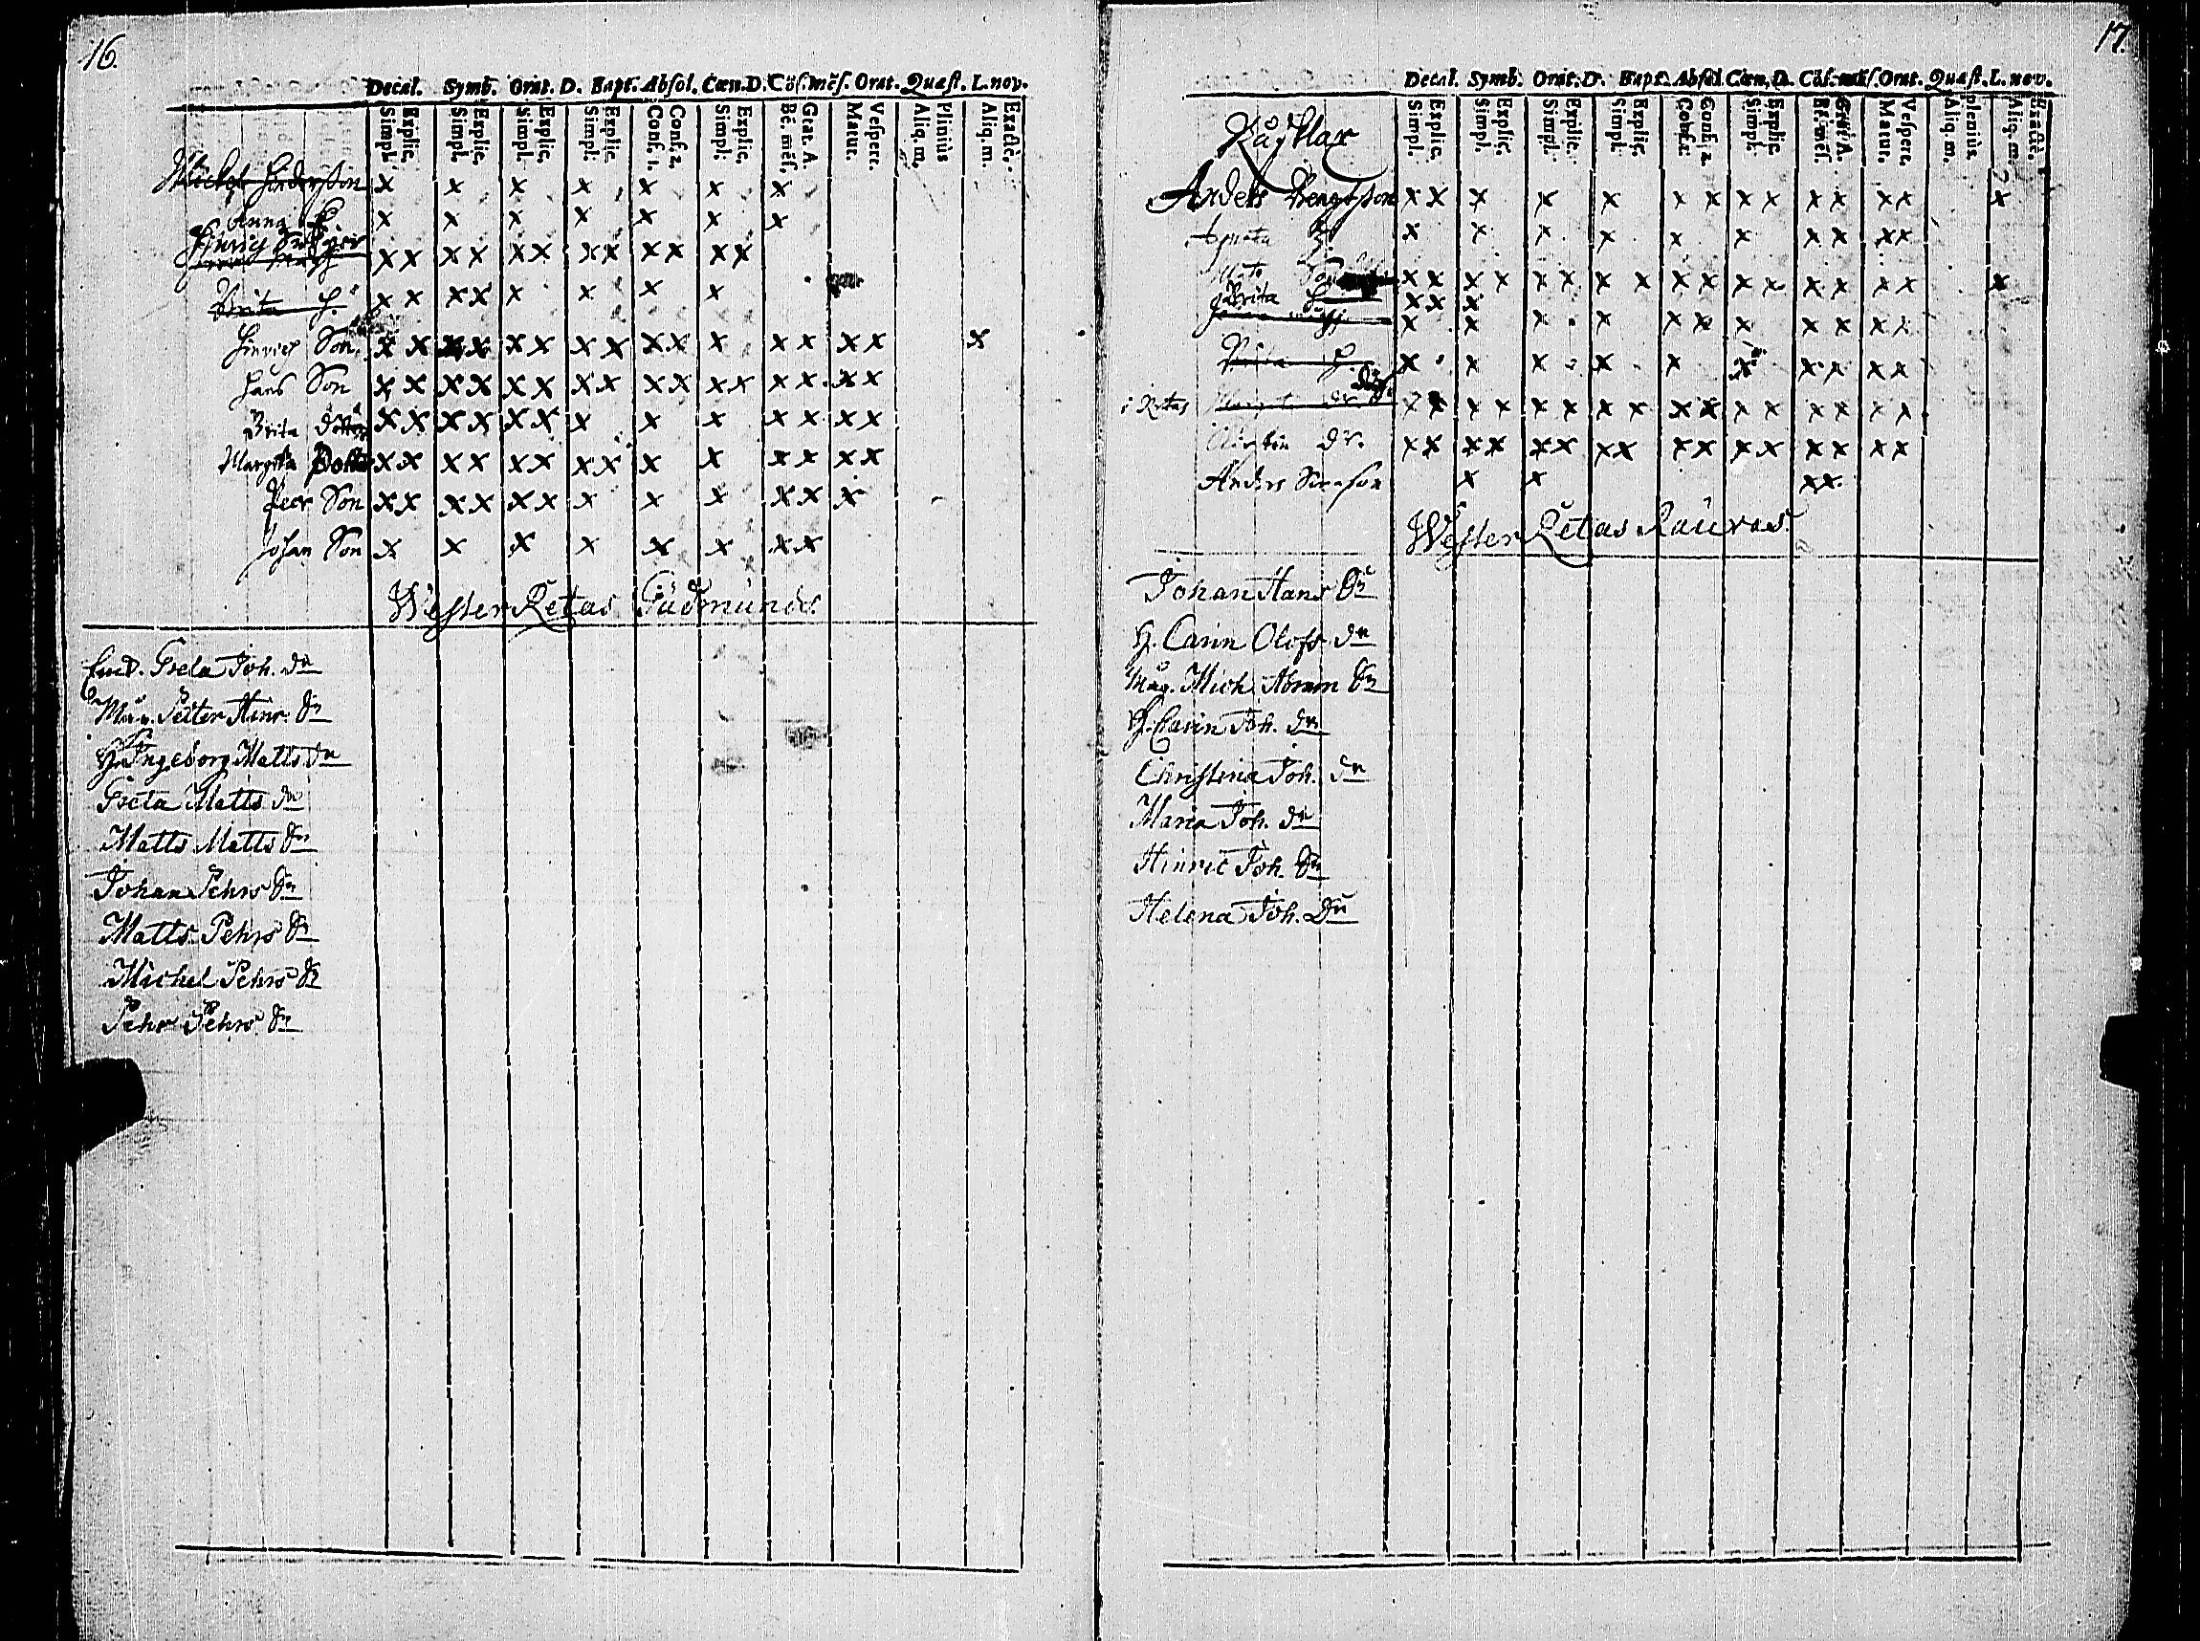 16.
Decal. Symb. Orat. D. Bapt. Absol. Cœn. D. Cös. mēs. Orat. Quæst. L. nov.
Simpl. Explic. Simpl. Explic. Simpl. Explic. Simpl. Explic. Conf. 1. Conf. 2. Simpl. Explic. Bē. mēs. Grat. A. Matut. Vespere. Aliq. m. Plinius Aliq. m. Exactè.
Michel Hindersson x x x x x x x
Anna H x x x x x x x
x x x x x x x x x x x x
Brita H. x x x x x x x x
Hinrich Son x x x x x x x x x x x x x x x x
Hans Son x x x x x x x x x x x x x x x x
Brita x x x x x x x x x x x x x
Margeta x x x x x x x x x x x x x x
Peer Son x x x x x x x x x x x x
Johan Son x x x x x x x x
Wester Retas Gudmunds
Enck. Greta Joh. dr
Måg. Petter Hinr. Sn
H. Ingeborg Matts dr
Greta Matts dr
Matts Matts Sn
Johan Pehrs Sn
Matts Pehrs Sn
Michel Pehrs Sn
Pehr Pehrs Sn
17.
Decal. Symb. Orat. D. Bapt. Absol. Cœn. D. Cös. mēs. Orat. Quæst. L. nov.
Simpl. Explic. Simpl. Explic. Simpl. Explic. Simpl. Explic. Conf. 1. Conf. 2. Simpl. Explic. Bē. mēs. Grat. A. Matut. Vespere. Aliq. m. plenius. Aliq. m. Exactè.
Anders Bengtsson x x x x x x x x x x x x x x
Agneta H. x x x x x x x x x x
x x x x x x x x x x x x x x x x x
Brita x x x
x x x x x x x x x x x
x x x x x x x x x x
i Retas x x x x x x x x x x x x x x x x
dr. x x x x x x x x x x x x x x x x
Anders x x x x
Wester Retas Raüvas
Johan Hans Sn
H. Carin Olofs dr
Måg. Mich Abram Sn
H. Carin Joh. dr
Christina Joh. dr
Maria Joh. dr
Hinric Joh. Sn
Helena Joh. Dr